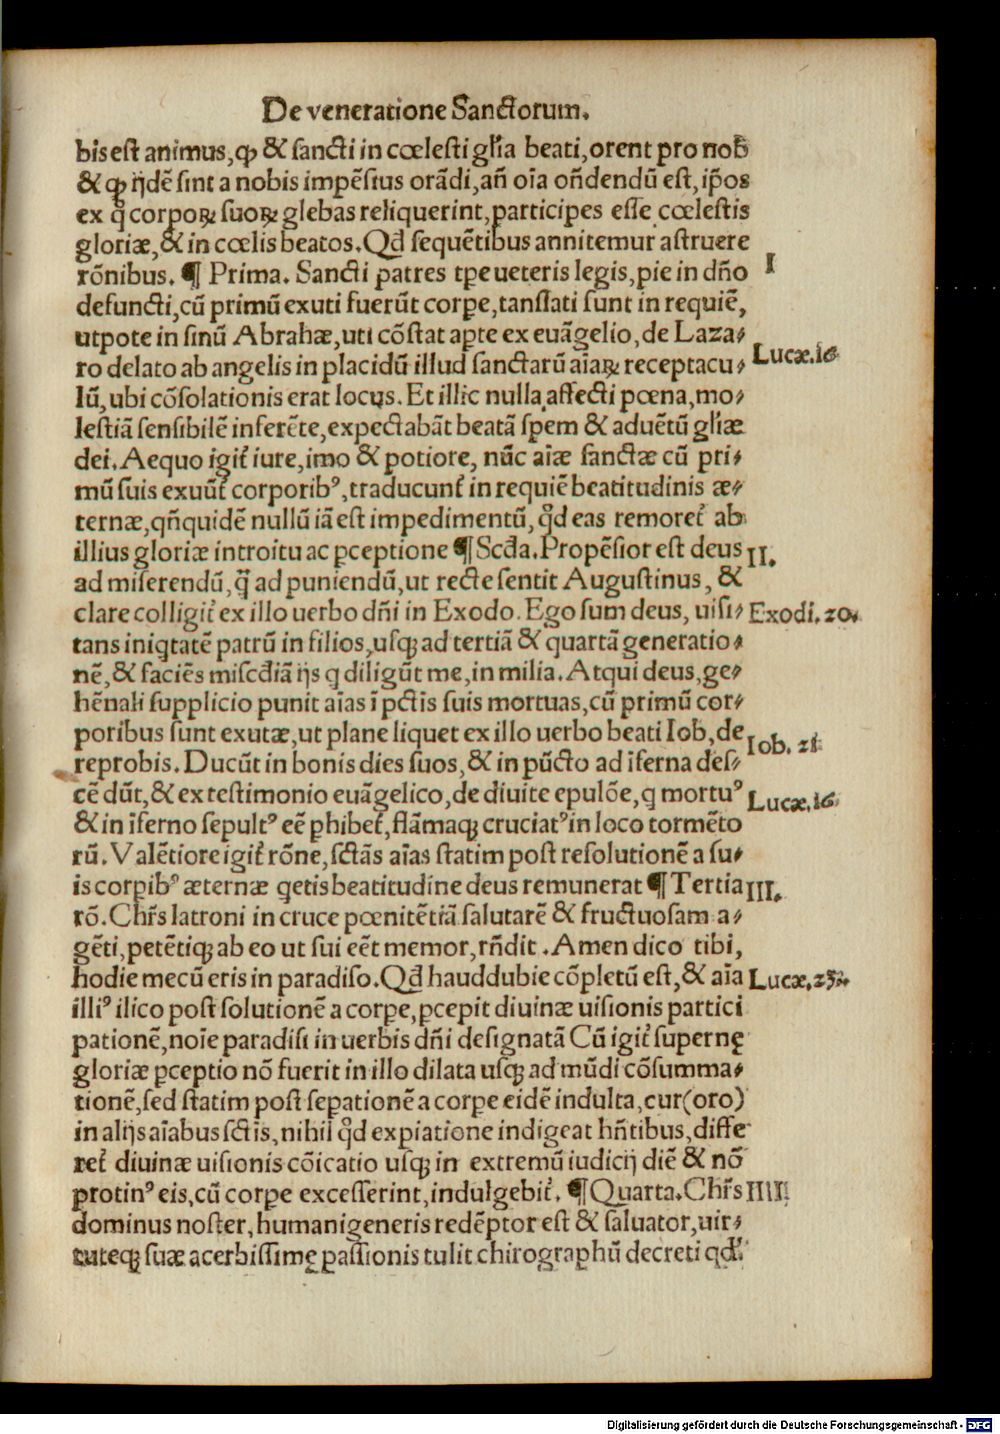 De veneratione Sanctorum.
bis est animus, ꝙ & sancti in cœlesti glīa beati, orent pro nob̄
& ꝙ ijdē sint a nobis impēsius orādi, añ oīa oñdendū est, ip̄os
ex q̄ corpoꝝ suoꝝ glebas reliquerint, participes esse cœlestis
gloriæ, & in cœlis beatos. Qđ sequētibus annitemur astruere
rōnibus. ¶ Prima. Sancti patres tꝑe ueteris legis, pie in dño
I
defuncti, cū primū exuti fuerūt corꝑe, tanslati sunt in requiē,
utpote in sinū Abrahæ, uti cōstat aꝑte ex euāgelio, de Laza-
ro delato ab angelis in placidū illud sanctarū aīaꝝ receptacu-
Lucæ.16
lū, ubi cōsolationis erat locus. Et illic nulla affecti pœna, mo-
lestiā sensibilē inferēte, expectabāt beatā spem & aduētū glīæ
dei. Aequo igit̄ iure, imo & potiore, nūc aīæ sanctæ cū pri-
mū suis exuūt̄ corporibꝰ, traducunt̄ in requiē beatitudinis æ-
ternæ, qñquidē nullū iā est impedimentū, qđ eas remoret̄ ab
illius gloriæ introitu ac ꝑceptione ¶ Scđa. Propēsior est deus
II.
ad miserendū, q̄ ad puniendū, ut recte sentit Augustinus, &
clare colligit̄ ex illo uerbo dñi in Exodo. Ego sum deus, uisi-
Exodi.20.
tans iniqtatē patrū in filios, usqꝫ ad tertiā & quartā generatio-
nē, & faciēs miscđiā ijs q diligūt me, in milia. Atqui deus, ge-
hēnali supplicio punit aīas ī pctīs suis mortuas, cū primū cor-
poribus sunt exutæ, ut plane liquet ex illo uerbo beati Iob, de
Iob. 21
reprobis. Ducūt in bonis dies suos, & in pūcto ad īferna des-
cē dūt, & ex testimonio euāgelico, de diuite epulōe, q mortuꝰ
Lucæ.16.
& in īferno sepultꝰ eē ꝑhibet̄, flāmaqꝫ cruciatꝰ in loco tormēto
rū. Valētiore igit̄ rōne, sctās aīas statim post resolutionē a su-
is corꝑibꝰ æternæ qetis beatitudine deus remunerat ¶ Tertia
III.
rō. Chr̄s latroni in cruce pœnitētiā salutarē & fructuosam a-
gēti, petētiqꝫ ab eo ut sui eēt memor, rñdit. Amen dico tibi,
hodie mecū eris in paradiso. Qđ hauddubie cōpletū est, & aīa
Lucæ.23.
illiꝰ ilico post solutionē a corꝑe, ꝑcepit diuinæ uisionis partici
pationē, noīe paradisi in uerbis dñi designatā Cū igit̄ supernę
gloriæ ꝑceptio nō fuerit in illo dilata usqꝫ ad mūdi cōsumma-
tionē, sed statim post seꝑationē a corꝑe eidē indulta, cur (oro)
in alijs aīabus sctīs, nihil qđ expiatione indigeat hñtibus, diffe
ret̄ diuinæ uisionis cōicatio usqꝫ in extremū iudicij diē & nō
protinꝰ eis, cū corꝑe excesserint, indulgebit̄. ¶ Quarta. Chr̄s
IIII.
dominus noster, humani generis redēptor est & saluator, uir-
tuteqꝫ suæ acerbissimę passionis tulit chirographū decreti qđ
Digitalisierung gefördert durch die Deutsche Forschungsgemeinschaft - DFG